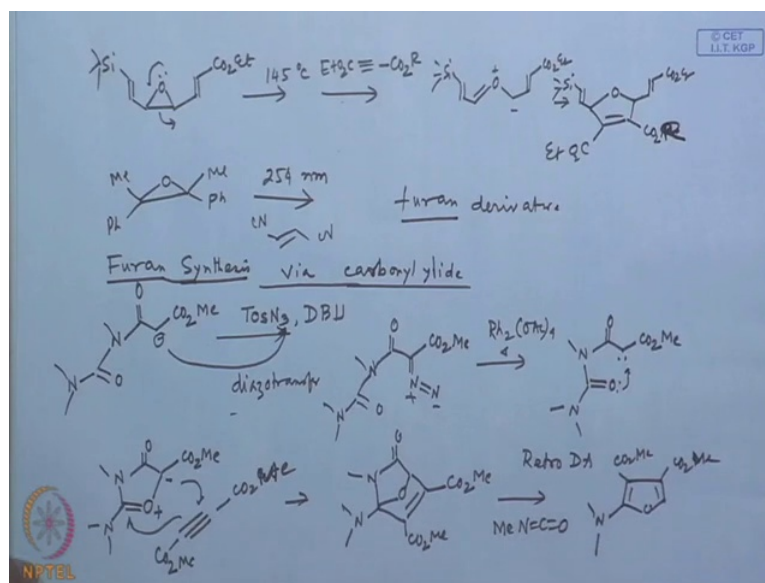 © CET
I.I.T. KGP
Si CO2Et
O
145 °C EtO2C ≡ -CO2R
Si O + - CO2Et
Si O CO2Et
EtO2C CO2R
Me O Me
Ph Ph
254 nm
CN CN
furan derivative
Furan Synthesis via carbonyl ylide
O CO2Me
N N O
TosN3, DBU
diazotransfer
O CO2Me
N N O N=N + -
Rh2(OAc)4
Δ
O CO2Me
N N O:
O CO2Me
N N O+ -
CO2Me
CO2Me
O CO2Me
N N O CO2Me
Retro DA
MeN=C=O
CO2Me CO2Me
N O
NPTEL